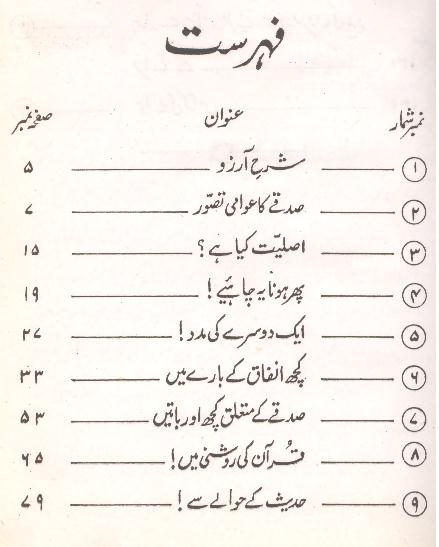 فہرست
نمبر شمار عنوان صفحہ نمبر
۱ شرحِ آرزو ۵
۲ صدقے کا عوامی تصّور ۷
۳ اصلیّت کیا ہے؟ ۱۵
۴ پھر ہونا یہ چاہئیے! ۱۹
۵ ایک دوسرے کی مدد! ۲۷
۶ کچھ انفاق کے بارے میں ۳۳
۷ صدقے کے متعلق کچھ اور باتیں ۵۳
۸ قرآن کی روشنی میں! ۶۵
۹ حدیث کے حوالے سے! ۷۹